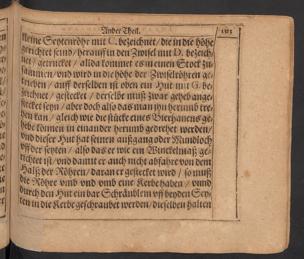 Ander Theil. 103
kleine Seytenröhr mit C. bezeichnet / die in die höhe
gerichtet seind / herauß in den Zwisel mit D. bezeich-
net / gestecket / alsda kommet es in einen Stock zu-
sammen / und wird in die höhe der Zwiselröhren ge-
trieben / auff derselben ist oben ein Hut mit G. be-
zeichnet / gestecket / derselbe muß zwar gehebe ange-
stecket seyn / aber doch also das man jhn herumb tre-
hen kan / gleich wie die stücke eines Bierhanens ge-
hebe können in einander herumb gedrehet werden /
und dieser Hut hat seinen außgang oder Mundloch
uff der seyten / also das er wie ein Winckelmaß ge-
richtet ist / und damit er auch nicht abfahre von dem
Halß der Röhren / daran er gestecket wird / so muß
die Röhre umb und umb eine Kerbe haben / unnd
durch den Hut ein bar Schräublein uff beyden Sey-
ten in die Kerbe geschraubet werden / dieselben halten